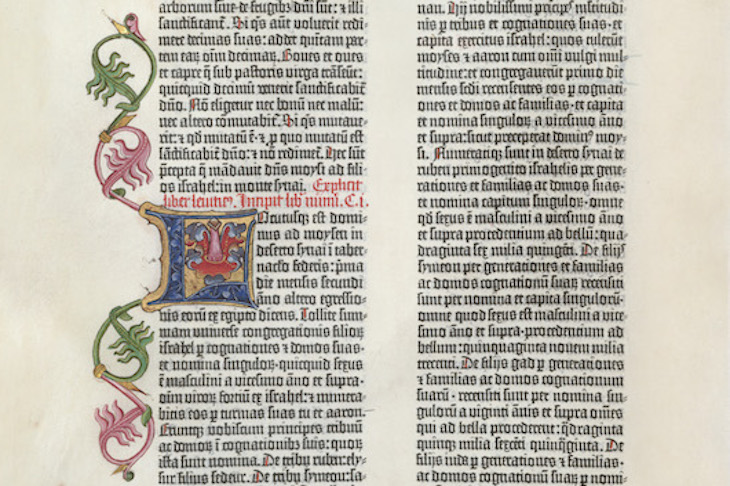 arborum siue de frugib⁹ dñi sūt: ⁊ illi
sanctificant̃. Si q̄s aut̃ voluerit redi-
mere decimas suas: addet quintam par-
tem eaꝝ. oīm decimaꝝ. Boues et oues
et capre q̄ sub pastoris virga trāseūt:
quicquid decimū venerit sanctificabit̃
dño. Nō eligetur nec bonū nec malū:
nec altero cōmutabit̃. Si q̄s mutaue-
rit: ⁊ qd̄ mutatū ē ⁊ ꝓ quo mutatū est
sāctificabit̃ dño: ⁊ nō redimet̃. Hec sūt
p̄cepta q̄ mādauit dñs moysi ad fili-
os israhel: in monte synai. Explicit
liber leuitic⁹. Incipit lib̃ nūmi. C. i.
Locutusq; est domi-
nus ad moysen in
deserto synai ī taber-
naclo federis: p̄ma
die mensis secundi
āno altero egressio-
nis eorū ex egipto dicens. Tollite sum-
mam vniuerse congregationis filioꝝ
israhel ꝑ cognationes ⁊ domos suas·
et nomina singuloꝝ· quicquid sexus
ē masculini a vicesimo āno et supra·
oīm viroꝝ fortiū ex israhel: ⁊ numera-
bitis eos ꝑ turmas suas tu et aaron.
Eruntq; vobiscum principes tribuū
ac domoꝝ ī cognationibꝫ suis: quoꝝ
ista sunt nomina. De tribu ruben: ely-
sur filius sedeur. De tribu symeon: sa-
nan. Hij nobilissimi prīcipes multitudi-
nis ꝑ tribus et cognationes suas· et
capita exercitus israhel: quos tulerūt
moyses ⁊ aaron cum om̄i vulgi mul-
titudine: et congregauerūt primo die
mensis sedi recensentes eos ꝑ cognati-
ones et domos ac familias· et capita
et nomina singuloꝝ a vicesimo āno
et supra: sicut preceperat domin⁹ moy-
si. Numeratiq; sunt in deserto synai de
ruben primogenito israhelis ꝑ gene-
rationes et familias ac domos suas·
et nomina capitum singuloꝝ· omne
qd̄ sexus ē masculini a vicesimo āno
et supra· procedentium ad bellū: qua-
draginta sex milia quingēti. De filijs
symeon per generationes et familias
ac domos cognationū suaꝝ recensiti
sunt per nomina et capita singuloꝝ·
omne quod sexus est masculini a vice-
simo āno et supra· procedentium ad
bellum: quinquaginta nouem milia
trecenti. De filijs gad ꝑ generationes
⁊ familias ac domos cognationum
suaꝝ· recensiti sunt per nomina sin-
gulorū a viginti ānis et supra om̄es
qui ad bella procederent: q̄draginta
quinq; milia sexcēti quinq̄ginta. De
filijs iuda ꝑ generationes ⁊ familias·
ac domos cognationū suaꝝ ꝑ nomi-